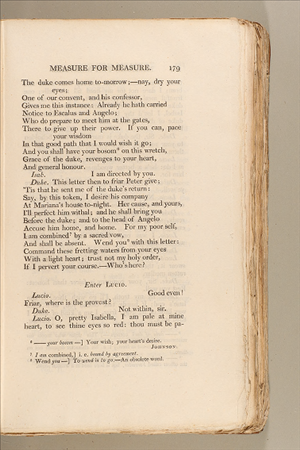 MEASURE FOR MEASURE. 179
The duke comes home to-morrow;—nay, dry your
eyes;
One of our convent, and his confessor,
Gives me this instance: Already he hath carried
Notice to Escalus and Angelo;
Who do prepare to meet him at the gates,
There to give up their power. If you can, pace
your wisdom
In that good path that I would wish it go;
And you shall have your bosom⁸ on this wretch,
Grace of the duke, revenges to your heart,
And general honour.
Isab. I am directed by you.
Duke. This letter then to friar Peter give;
'Tis that he sent me of the duke's return:
Say, by this token, I desire his company
At Mariana's house to-night. Her cause, and yours,
I'll perfect him withal; and he shall bring you
Before the duke; and to the head of Angelo
Accuse him home, and home. For my poor self,
I am combined⁷ by a sacred vow,
And shall be absent. Wend you⁸ with this letter:
Command these fretting waters from your eyes
With a light heart; trust not my holy order,
If I pervert your course.—Who's here?
Enter LUCIO.
Lucio. Good even!
Friar, where is the provost?
Duke. Not within, sir.
Lucio. O, pretty Isabella, I am pale at mine
heart, to see thine eyes so red: thou must be pa-
— your bosom —] Your wish; your heart's desire.
JOHNSON.
⁷ I am combined,] i. e. bound by agreement.
⁸ Wend you—] To wend is to go.—An obsolete word.